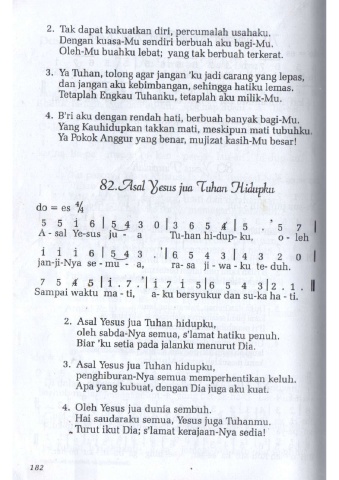 2. Tak dapat kukuatkan diri, percumalah usahaku.
Dengan kuasa-Mu sendiri berbuah aku bagi-Mu.
Oleh-Mu buahku lebat; yang tak berbuah terkerat.
3. Ya Tuhan, tolong agar jangan 'ku jadi carang yang lepas,
dan jangan aku kebimbangan, sehingga hatiku lemas.
Tetaplah Engkau Tuhanku, tetaplah aku milik-Mu.
4. B'ri aku dengan rendah hati, berbuah banyak bagi-Mu.
Yang Kauhidupkan takkan mati, meskipun mati tubuhku.
Ya Pokok Anggur yang benar, mujizat kasih-Mu besar!
82. Asal Yesus jua Tuhan Hidupku
do = es 4/4
5 5 i 6 | 5 4 3 0 | 3 6 5 4 | 5 . ' 5 7 |
A - sal Ye-sus ju - a Tu-han hi-dup- ku, o - leh
i i i 6 | 5 4 3 . ' | 6 5 4 3 | 4 3 2 0 |
jan-ji-Nya se - mu - a, ra- sa ji - wa - ku te- duh.
7 5 4 5 | i . 7 . ' | i 7 i 5 | 6 5 4 3 | 2 . 1 . ||
Sampai waktu ma - ti, a- ku bersyukur dan su-ka ha - ti.
2. Asal Yesus jua Tuhan hidupku,
oleh sabda-Nya semua, s'lamat hatiku penuh.
Biar 'ku setia pada jalanku menurut Dia.
3. Asal Yesus jua Tuhan hidupku,
penghiburan-Nya semua memperhentikan keluh.
Apa yang kubuat, dengan Dia juga aku kuat.
4. Oleh Yesus jua dunia sembuh.
Hai saudaraku semua, Yesus juga Tuhanmu.
Turut ikut Dia; s'lamat kerajaan-Nya sedia!
182